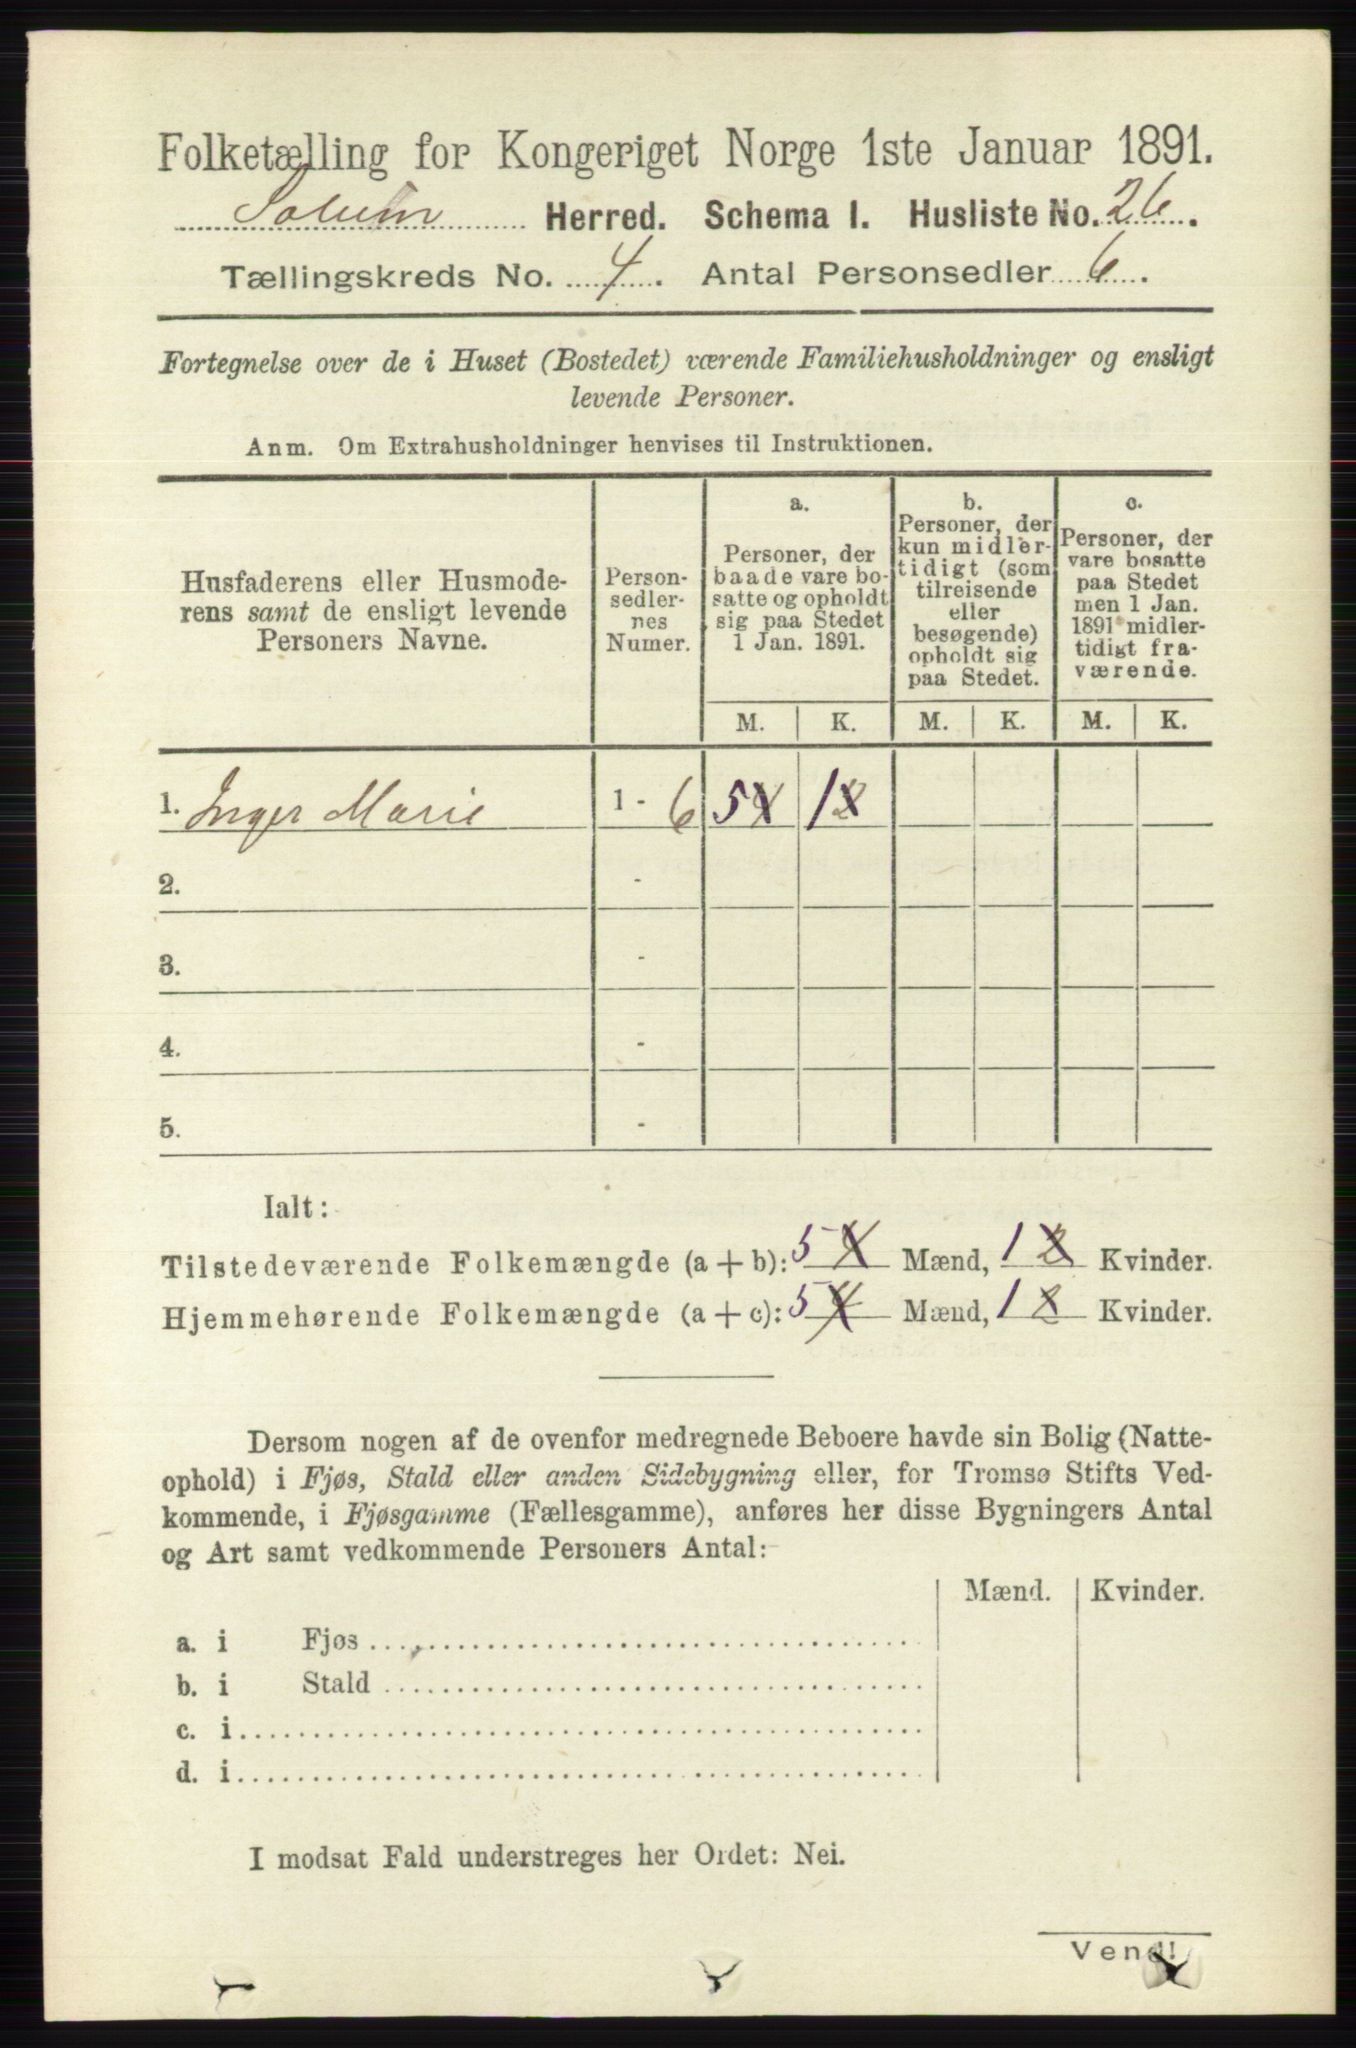 Folketælling for Kongeriget Norge 1ste Januar 1891.
Solum Herred. Schema I. Husliste No. 26.
Tællingskreds No. 4. Antal Personsedler 6.
Fortegnelse over de i Huset (Bostedet) værende Familiehusholdninger og ensligt
levende Personer.
Anm. Om Extrahusholdninger henvises til Instruktionen.
Husfaderens eller Husmode-
rens samt de ensligt levende
Personers Navne.
Person-
sedler-
nes
Numer.
a.
Personer, der
baade vare bo-
satte og opholdt
sig paa Stedet
1 Jan. 1891.
b.
Personer, der
kun midler-
tidigt (som
tilreisende
eller
besøgende)
opholdt sig
paa Stedet.
c.
Personer, der
vare bosatte
paa Stedet
men 1 Jan.
1891 midler-
tidigt fra-
værende.
M. K. M. K. M. K.
1. Inger Marie 1 - 6 5 4 1 2
2. -
3. -
4. -
5. -
Ialt:
Tilstedeværende Folkemængde (a + b): 5 4 Mænd, 1 2 Kvinder.
Hjemmehørende Folkemængde (a + c): 5 4 Mænd, 1 2 Kvinder.
Dersom nogen af de ovenfor medregnede Beboere havde sin Bolig (Natte-
ophold) i Fjøs, Stald eller anden Sidebygning eller, for Tromsø Stifts Ved-
kommende, i Fjøsgamme (Fællesgamme), anføres her disse Bygningers Antal
og Art samt vedkommende Personers Antal:
Mænd. Kvinder.
a. i Fjøs
b. i Stald
c. i
d. i
I modsat Fald understreges her Ordet: Nei.
Vend!